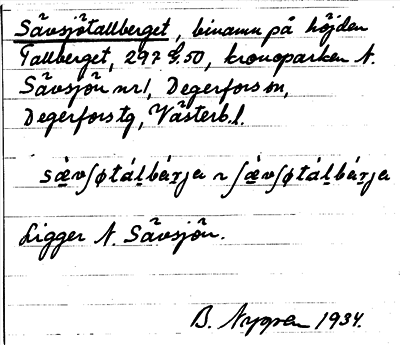 Sävsjötallberget, binamn på höjden
Tallberget, 297 G.50, kronoparken N.
Sävsjön nr 1, Degerfors sn,
Degerfors tg, Västerb. l.
sä̀vʃøtálbárja ~ ʃä̀vʃøtálbárja
Ligger N. Sävsjön.
B. Nygren 1934.